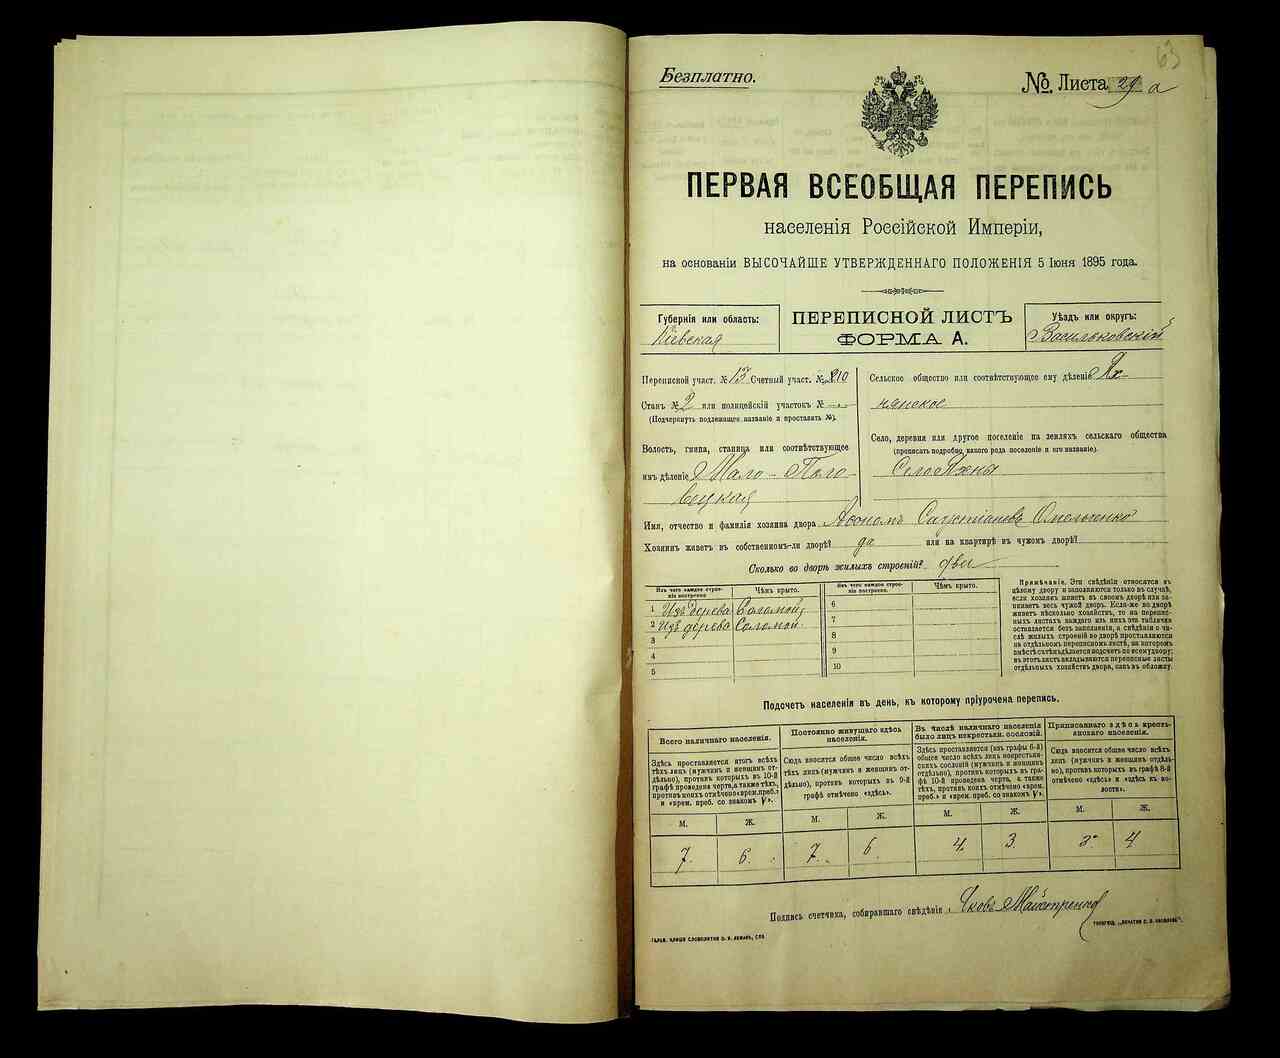 63
Безплатно.
№ Листа 29 а
ПЕРВАЯ ВСЕОБЩАЯ ПЕРЕПИСЬ
населенія Россійской Имперіи,
на основаніи ВЫСОЧАЙШЕ УТВЕРЖДЕННАГО ПОЛОЖЕНІЯ 5 Іюня 1895 года.
Губернія или область:
Кіевская
ПЕРЕПИСНОЙ ЛИСТЪ
ФОРМА А.
Уѣздъ или округъ:
Васильковскій
Переписной участ. № 13 Счетный участ. № 210
Станъ № 2 или полицейскій участокъ №
(Подчеркнуть подлежащее названіе и проставить №).
Волость, гмина, станица или соотвѣтствующее
имъ дѣленіе Мало-Поло-
вецкая
Сельское общество или соотвѣтствующее ему дѣленіе Ях-
нянское
Село, деревня или другое поселеніе на земляхъ сельскаго общества
(прописать подробно, какого рода поселеніе и его названіе).
Село Яхны
Имя, отчество и фамилія хозяина двора Омельченко
Хозяинъ живетъ въ собственномъ-ли дворѣ? да или на квартирѣ въ чужомъ дворѣ?
Сколько во дворѣ жилыхъ строеній? два
Изъ чего каждое строе-
ніе построено
Чѣмъ крыто.
1 Изъ дерева Соломой
2 Изъ дерева Соломой
3
4
5
Изъ чего каждое строе-
ніе построено
Чѣмъ крыто.
6
7
8
9
10
Примѣчаніе. Эти свѣдѣнія относятся къ
цѣлому двору и заполняются только въ случаѣ,
если хозяинъ живетъ въ своемъ дворѣ или за-
нимаетъ весь чужой дворъ. Если-же во дворѣ
живетъ нѣсколько хозяйствъ, то на перепис-
ныхъ листахъ каждаго изъ нихъ эта табличка
оставляется безъ заполненія, а свѣдѣнія о чи-
слѣ жилыхъ строеній во дворѣ проставляются
на отдѣльномъ переписномъ листѣ, на которомъ
вмѣстѣ съ тѣмъ дѣлается подсчетъ по всему двору;
въ этотъ листъ вкладываются переписные листы
отдѣльныхъ хозяйствъ двора, какъ въ обложку.
Подсчетъ населенія въ день, къ которому пріурочена перепись.
Всего наличнаго населенія.
Здѣсь проставляется итогъ всѣхъ
тѣхъ лицъ (мужчинъ и женщинъ от-
дѣльно), противъ которыхъ въ 10-й
графѣ проведена черта, а также тѣхъ,
противъ коихъ отмѣчено «врем. преб.»
и «врем. преб. со знакомъ V».
М. Ж.
7. 6.
Постоянно живущаго здѣсь
населенія.
Сюда вносится общее число всѣхъ
тѣхъ лицъ (мужчинъ и женщинъ от-
дѣльно), противъ которыхъ въ 9-й
графѣ отмѣчено «здѣсь».
М. Ж.
7. 6.
Въ числѣ наличнаго населенія
было лицъ некрестьян. сословій.
Здѣсь проставляется (изъ графы 6-й)
общее число всѣхъ лицъ некрестьян-
скихъ сословій (мужчинъ и женщинъ
отдѣльно), противъ которыхъ въ гра-
фѣ 10-й проведена черта, а также
тѣхъ, противъ коихъ отмѣчено «врем.
преб.» и «врем. преб. со знакомъ V».
М. Ж.
4. 3.
Приписаннаго здѣсь кресть-
янскаго населенія.
Сюда вносится общее число всѣхъ
лицъ (мужчинъ и женщинъ отдѣль-
но), противъ которыхъ въ графѣ 8-й
отмѣчено «здѣсь» и «здѣсь въ во-
лости».
М. Ж.
3. 4
Подпись счетчика, собиравшаго свѣдѣнія Яковъ Майстренко